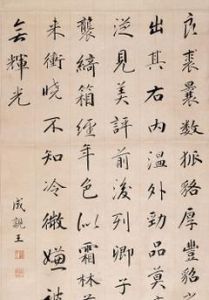 良裘曩數狐貉厚豐貂
出其右內溫外勁品莫
見美評前後列卿子
襲綺箱經年色似霜林
來衝曉不知冷微嫌被
無輝光
成親王